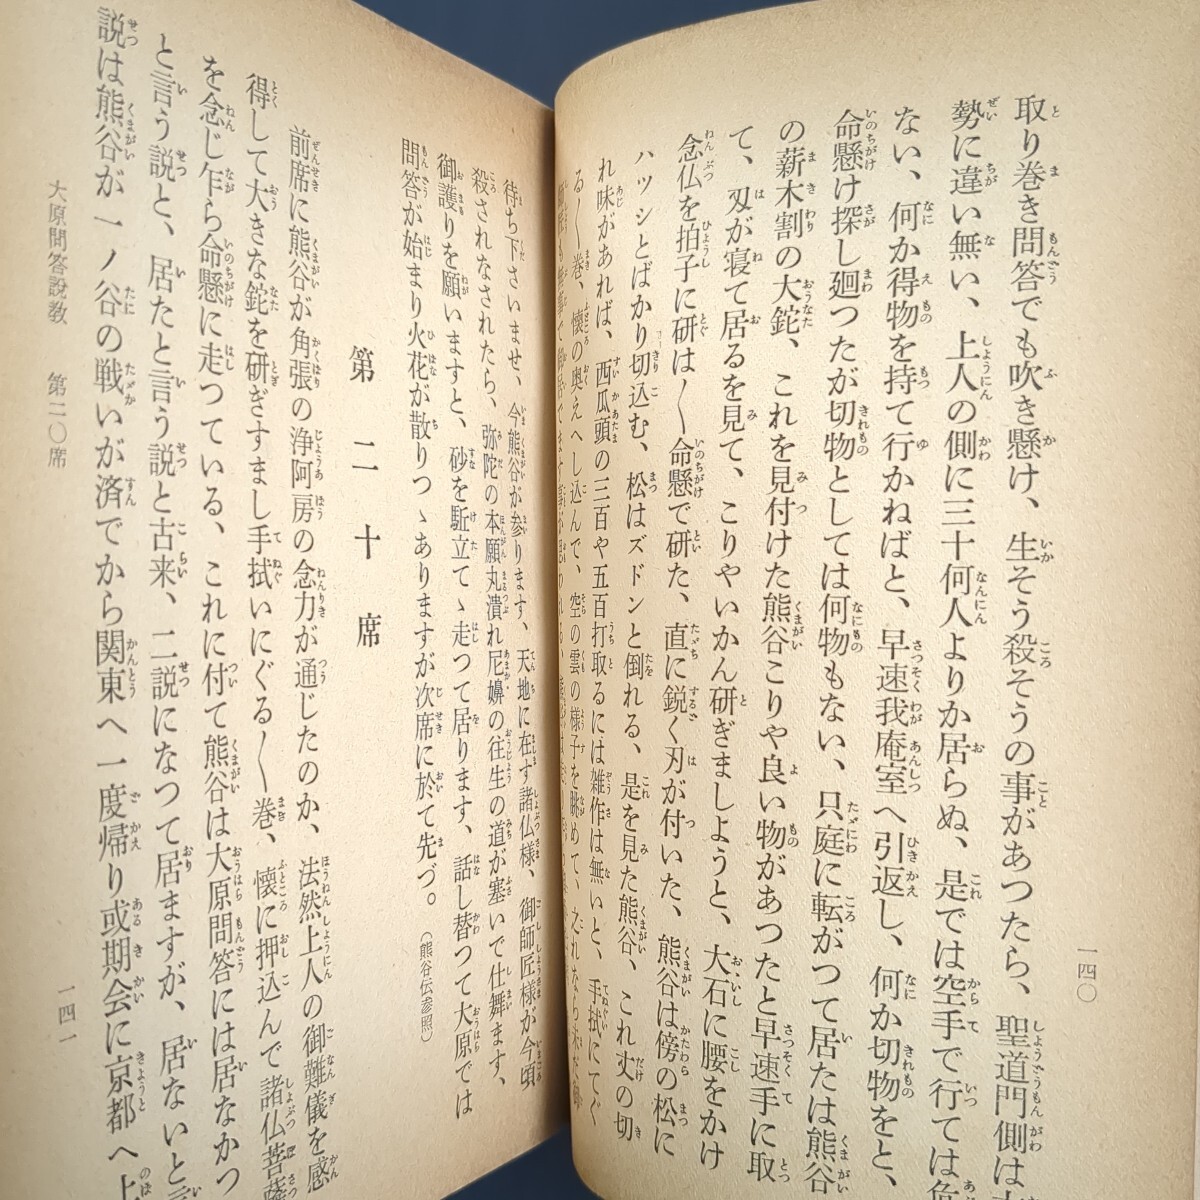 取り巻き問答でも吹き懸け、生そう殺そうの事があつたら、聖道門側は
勢に違い無い、上人の側に三十何人よりか居らぬ、是では空手で行ては危
ない、何か得物を持て行かねばと、早速我庵室へ引返し、何か切物をと、
命懸け探し廻つたが切物としては何物もない、只庭に転がつて居たは熊谷
の薪木割の大鉈、これを見付けた熊谷こりや良い物があつたと早速手に取
て、刄が寝て居るを見て、こりやいかん研ぎましようと、大石に腰をかけ
念仏を拍子に研は〳〵命懸で研た、直に鋭く刃が付いた、熊谷は傍の松に
ハツシとばかり切込む、松はズドンと倒れる、是を見た熊谷、これ丈の切
れ味があれば、西瓜頭の三百や五百打取るには雑作は無いと、手拭にてぐ
る〳〵巻、懐の奥えへし込んで、空の雲の様子を眺めて、
一四〇
待ち下さいませ、今熊谷が参ります、天地に在す諸仏様、御師匠様が今頃
殺されなされたら、弥陀の本願丸潰れ尼嬶の往生の道が塞いで仕舞ます、
御護りを願いますと、砂を駈立てゝ走つて居ります、話し替つて大原では
問答が始まり火花が散りつゝありますが次席に於て先づ。（熊谷伝参照）
第二十席
前席に熊谷が角張の浄阿房の念力が通じたのか、法然上人の御難儀を感
得して大きな鉈を研ぎすまし手拭いにぐる〳〵巻、懐に押込んで諸仏菩薩
を念じ乍ら命懸に走つている、これに付て熊谷は大原問答には居なかつ
と言う説と、居たと言う説と古来、二説になつて居ますが、居ないと言
説は熊谷が一ノ谷の戦いが済でから関東へ一度帰り或期会に京都へ上
大原問答説教　第二〇席
一四一